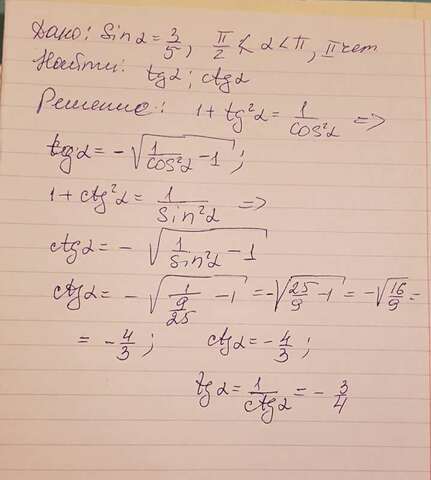 Дано: Sin α = 3/5, π/2 < α < π, II чет
Найти: tg α; ctg α
Решение: 1 + tg²α = 1/cos²α =>
tg α = -√(1/cos²α - 1);
1 + ctg²α = 1/sin²α =>
ctg α = - √(1/sin²α - 1)
ctg α = - √(1/(9/25) - 1) = -√(25/9 - 1) = -√(16/9) =
= - 4/3; ctg α = - 4/3;
tg α = 1/ctg α = - 3/4